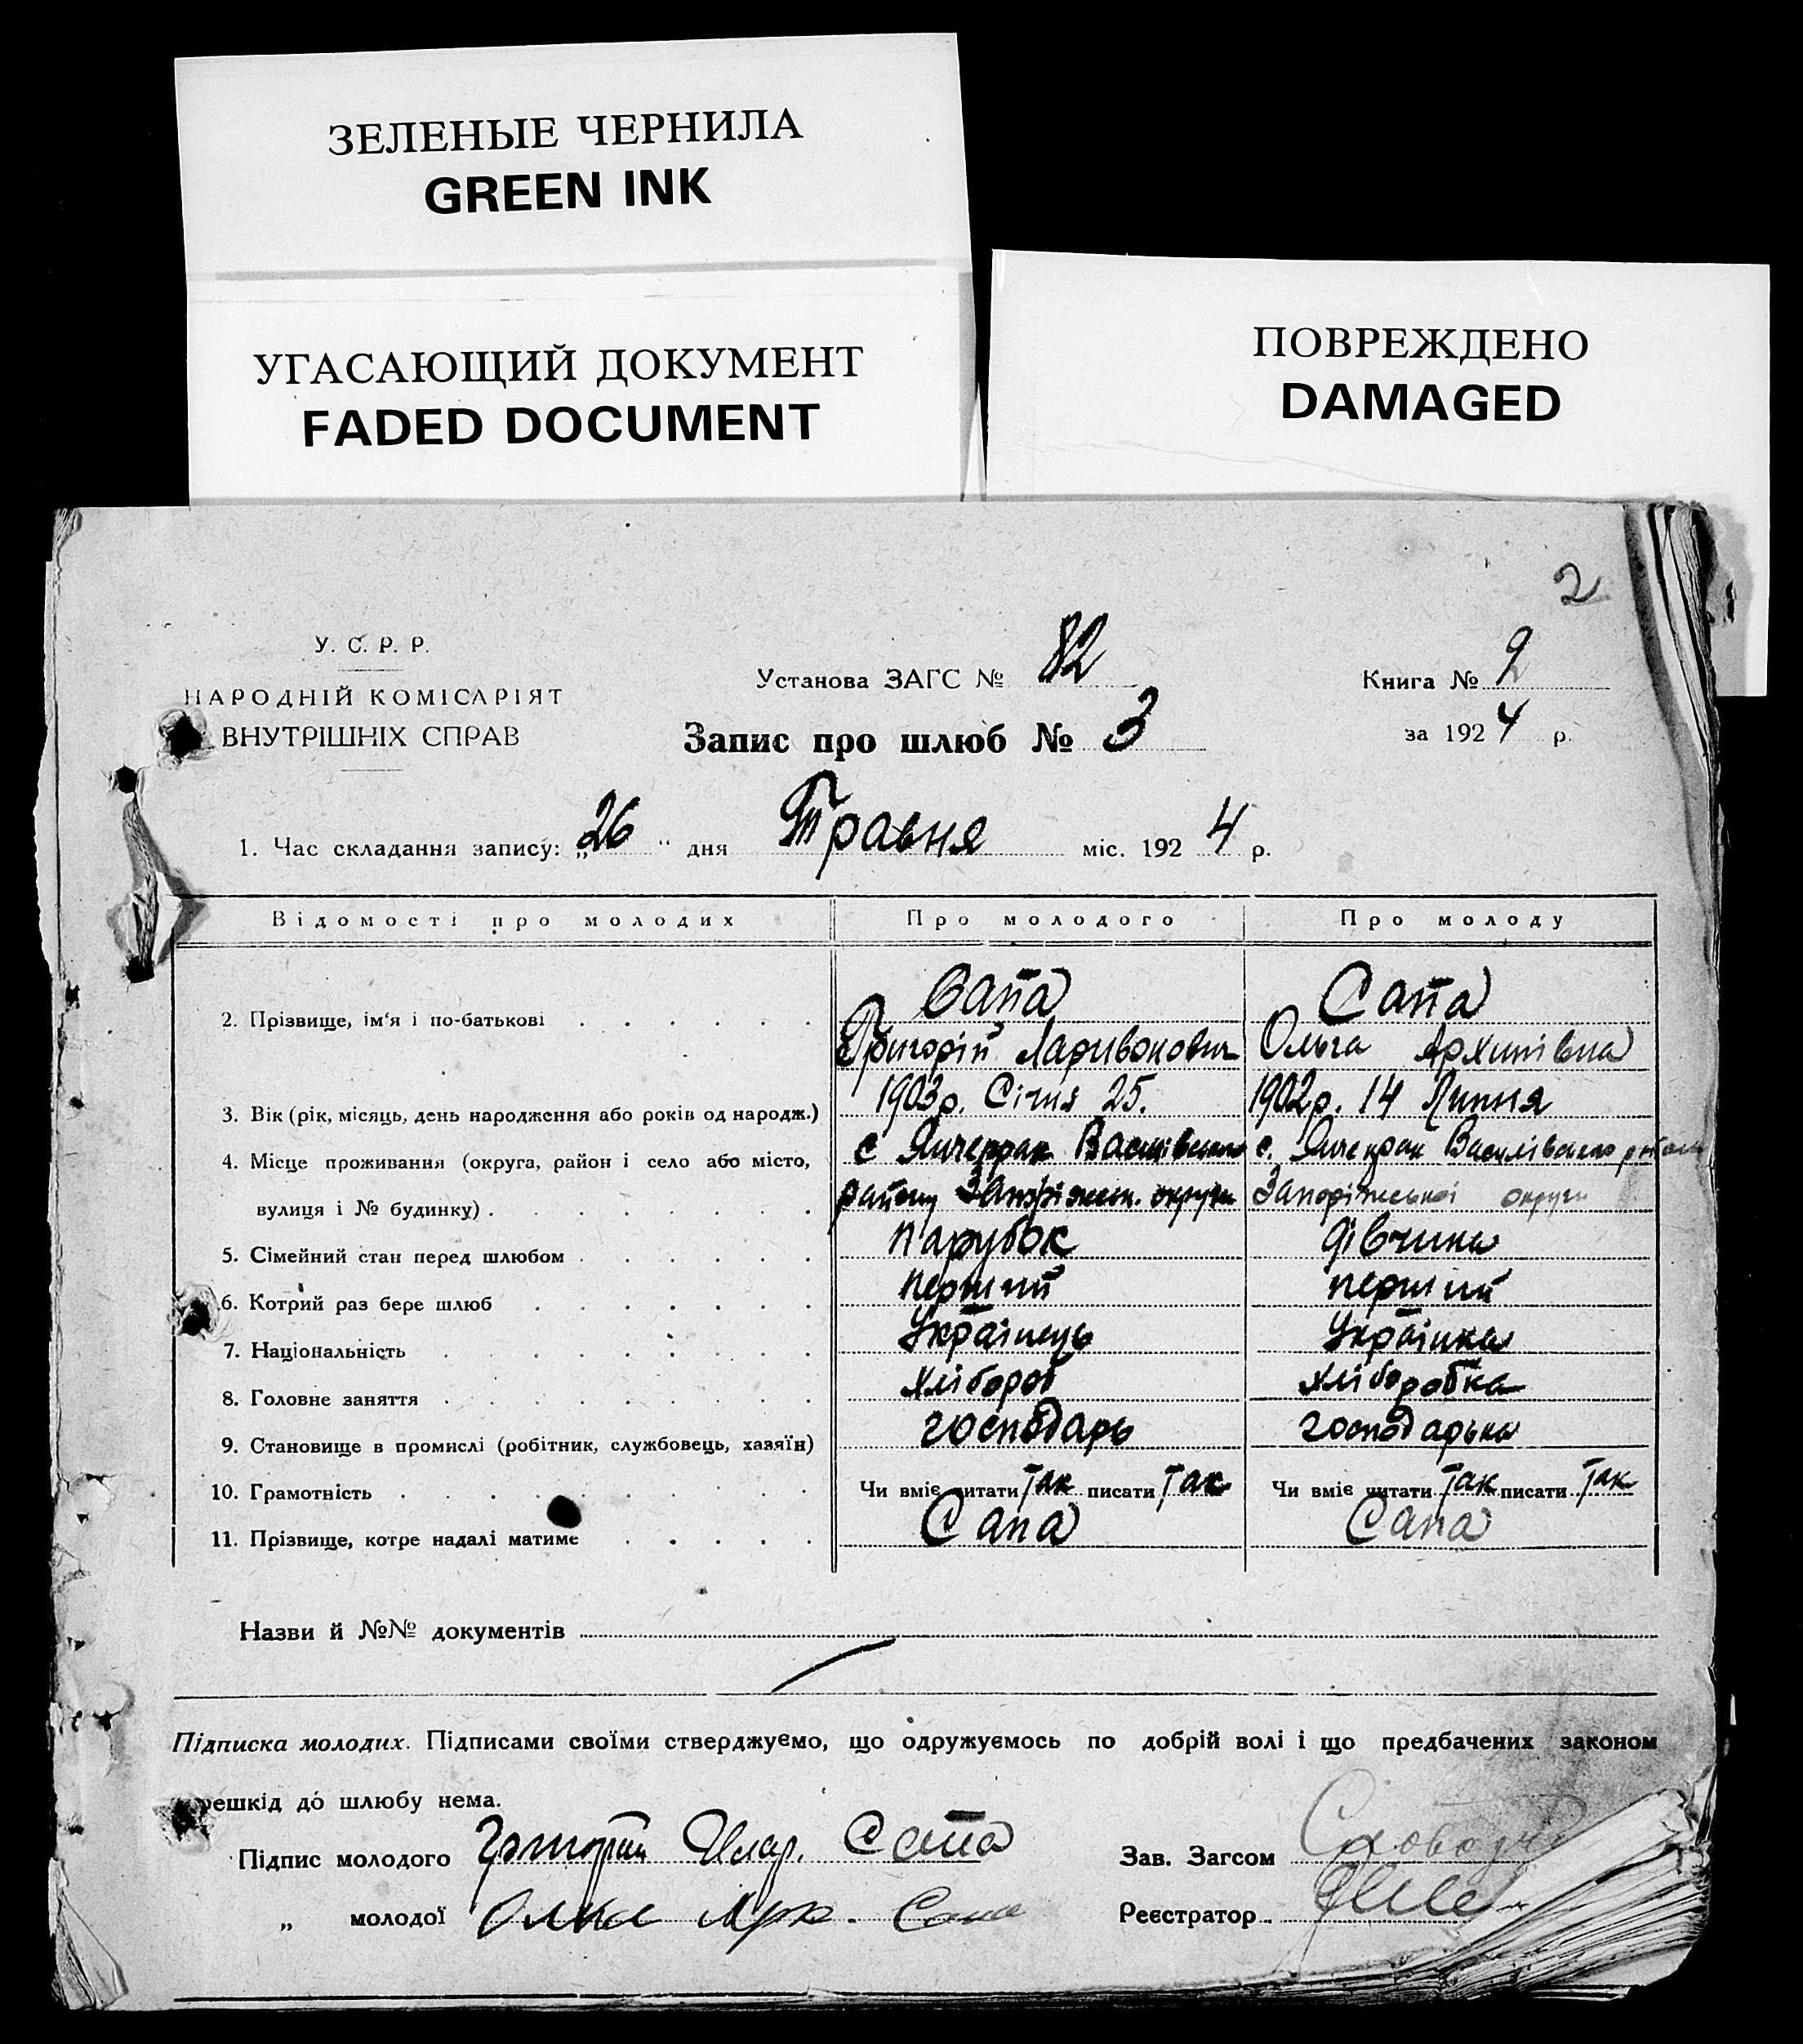 ЗЕЛЕНЫЕ ЧЕРНИЛА
GREEN INK
УГАСАЮЩИЙ ДОКУМЕНТ
FADED DOCUMENT
ПОВРЕЖДЕНО
DAMAGED
2
У. С. Р. Р.
НАРОДНІЙ КОМІСАРІЯТ
ВНУТРІШНІХ СПРАВ
Установа ЗАГС № 82
Книга № 2
Запис про шлюб № 3
за 1924 р.
1. Час складання запису: „26“ дня Травня міс. 1924 р.
Відомості про молодих Про молодого Про молоду
Сапа Сапа
2. Прізвище, ім'я і по-батькові . . . . . .
Григорій Ларивонович Ольга Архипівна
3. Вік (рік, місяць, день народження або років од народж.) 1903р. Січня 25. 1902р. 14 Липня
4. Місце проживання (округа, район і село або місто, с Янчекрак Василівського с. Янчекрак Василівського району
вулиця і № будинку) . . . . . . . району Запоріжськ. округи Запоріжської округи
5. Сімейний стан перед шлюбом . . . . . . парубок дівчина
6. Котрий раз бере шлюб . . . . . . . перший перший
7. Національність . . . . . . . . . Українець Українка
8. Головне заняття . . . . . . . . . хлібороб хліборобка
9. Становище в промислі (робітник, службовець, хазяїн) господарь господарька
10. Грамотність . . . . . . . . . Чи вміє читати так писати так Чи вміє читати так писати так
11. Прізвище, котре надалі матиме . . . . . Сапа Сапа
Назви й №№ документів
Підписка молодих. Підписами своїми стверджуємо, що одружуємось по добрій волі і що предбачених законом
решкід до шлюбу нема.
Підпис молодого Григорий Илар. Сапа Зав. Загсом
„ молодої Олка Арх. Сапа Реєстратор